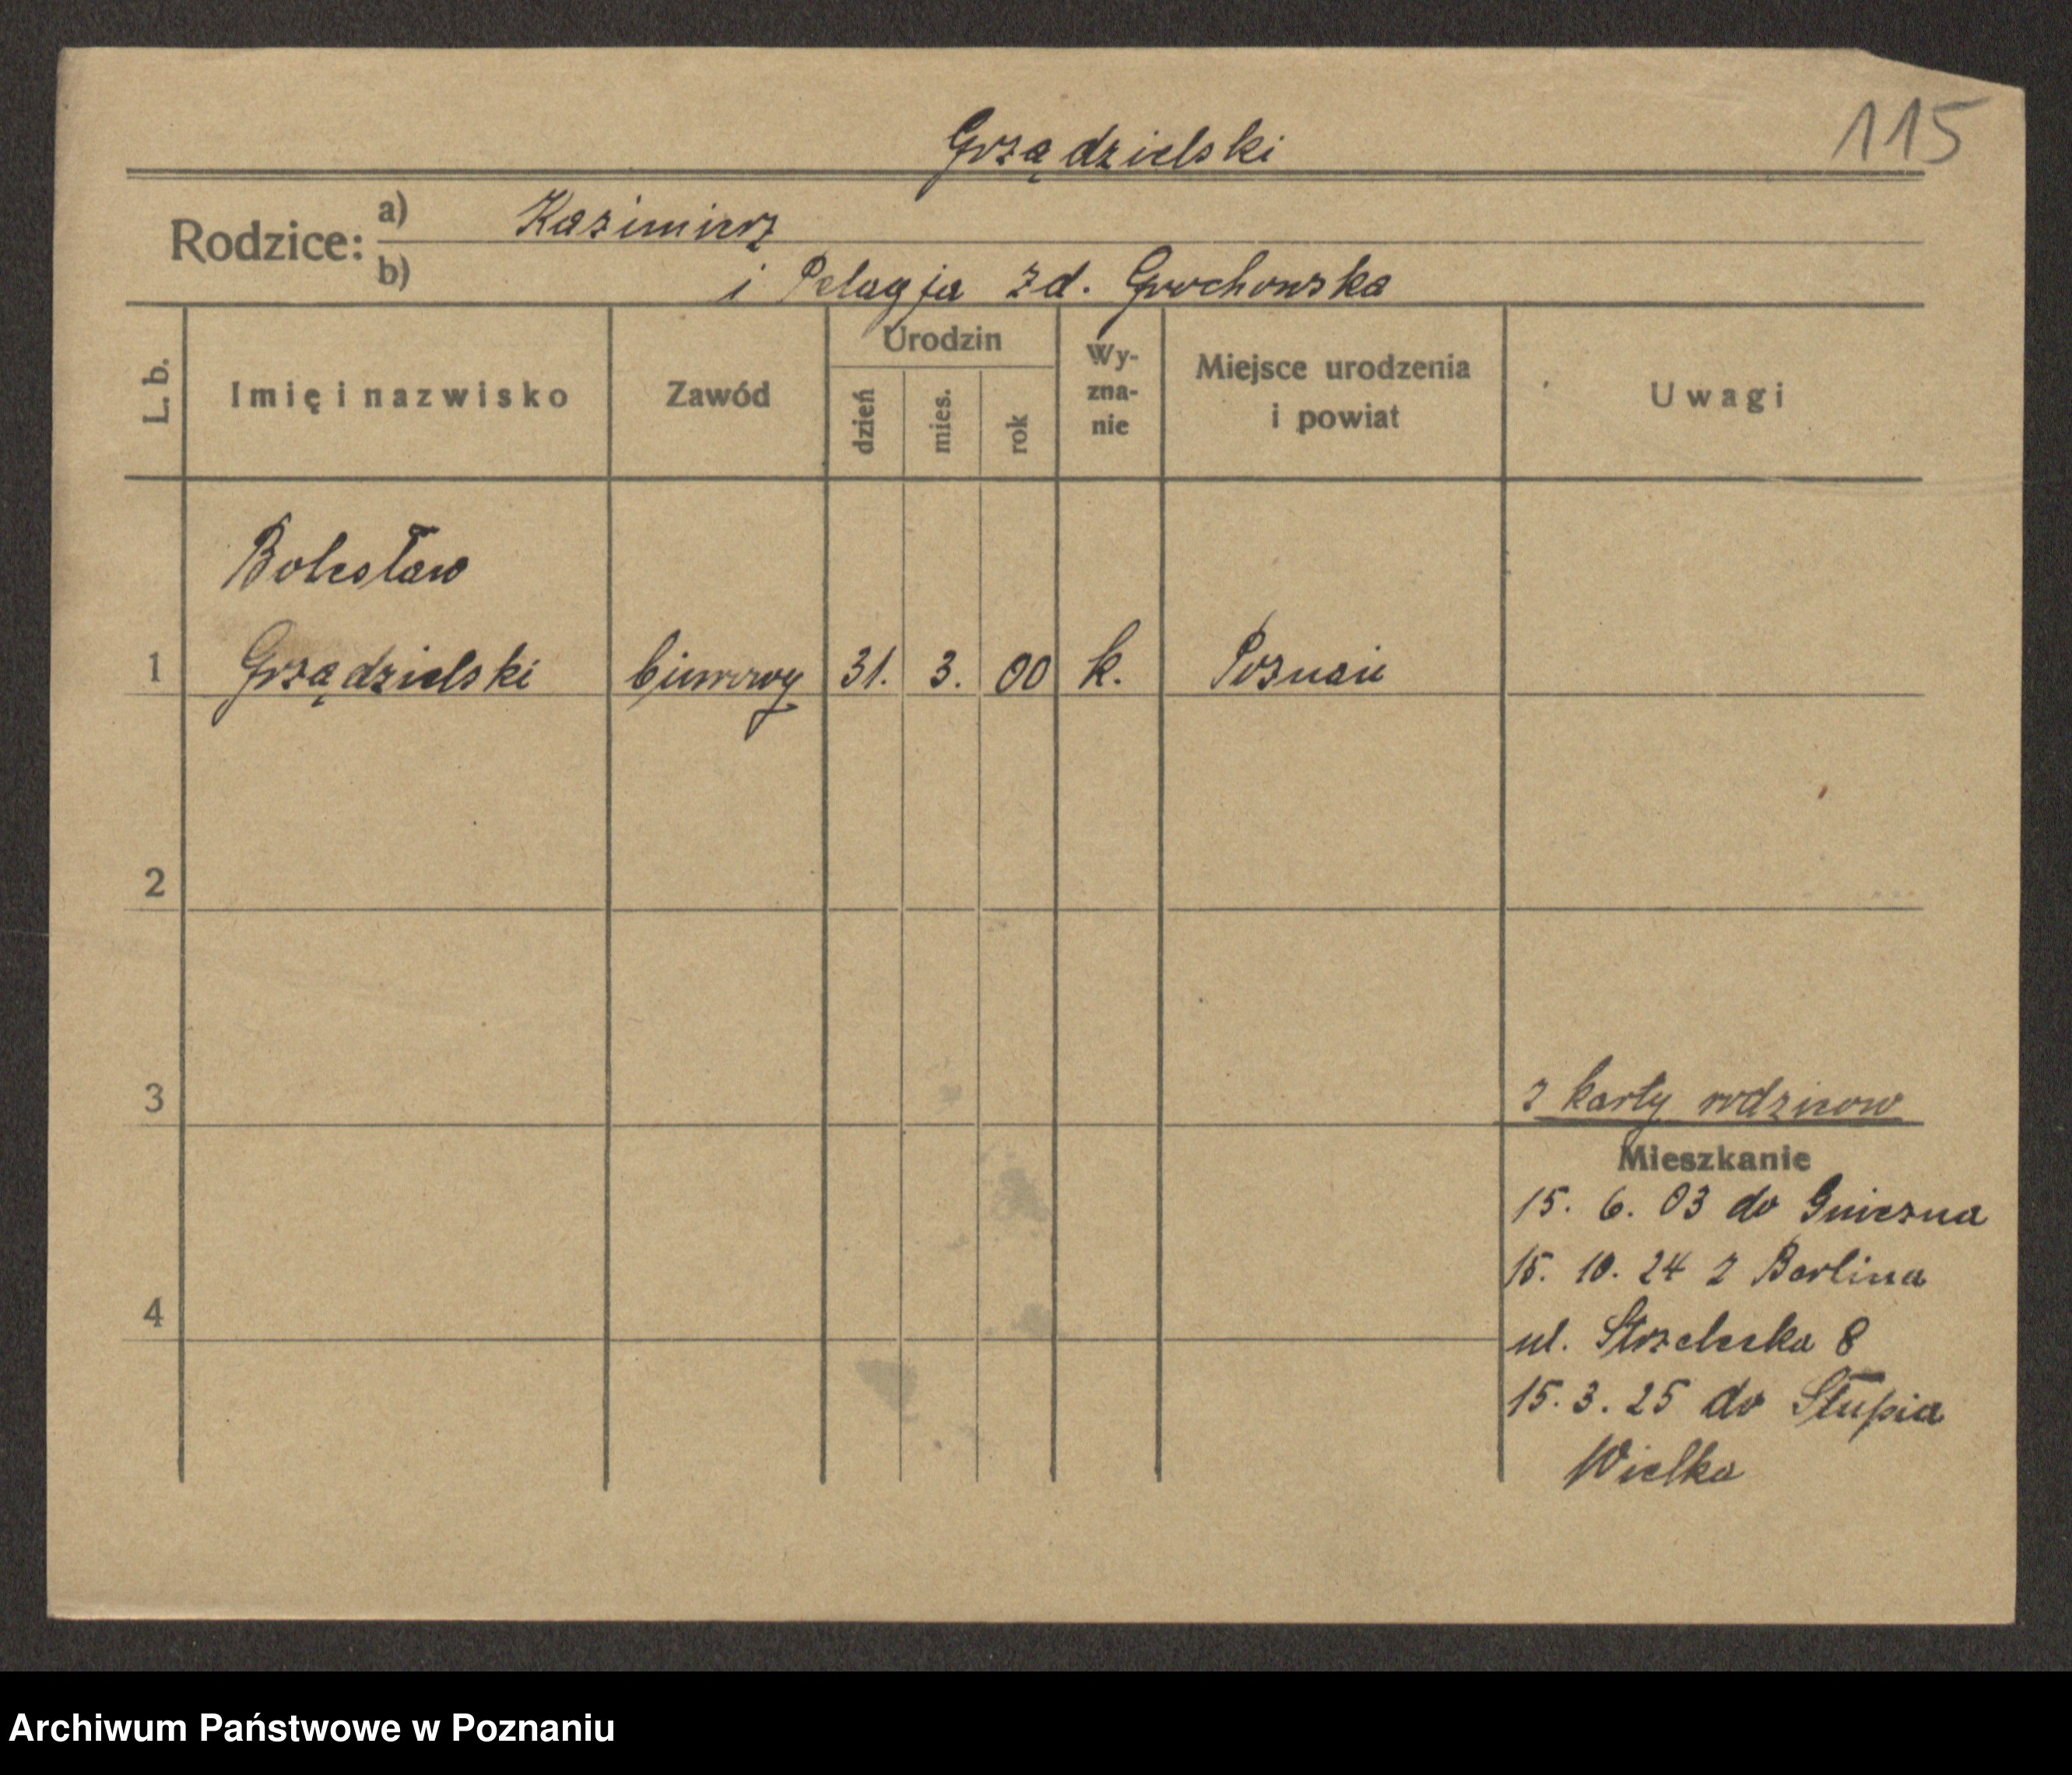 115
Grządzielski
Rodzice:
a) Kazimierz
b) i Pelagja zd. Grochowska
L. b.
Imię i nazwisko
Zawód
Urodzin
dzień
mies.
rok
Wy-
zna-
nie
Miejsce urodzenia
i powiat
Uwagi
Bolesław
1 Grządzielski biurowy 31. 3. 00 k. Poznań
2
3
z karty rodziców
Mieszkanie
15. 6. 03 do Gniezna
15. 10. 24 z Berlina
4
ul. Strzelecka 8
15. 3. 25 do Słupia
Wielka
Archiwum Państwowe w Poznaniu